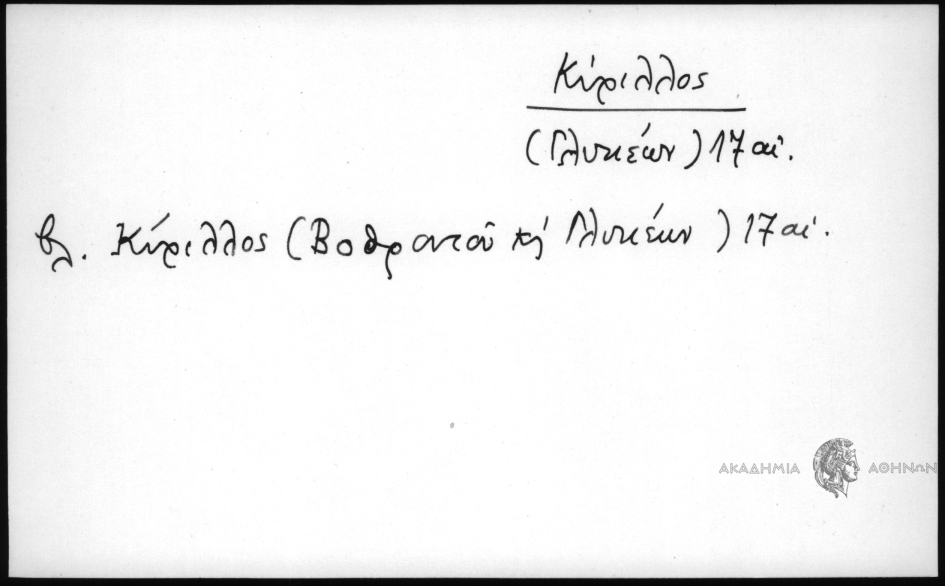 Κύριλλος
(Γλυκέων) 17 αἰ.
βλ. Κύριλλος (Βοθροντοῦ κὴ Γλυκέων) 17 αἰ.
ΑΚΑΔΗΜΙΑ ΑΘΗΝΩΝ